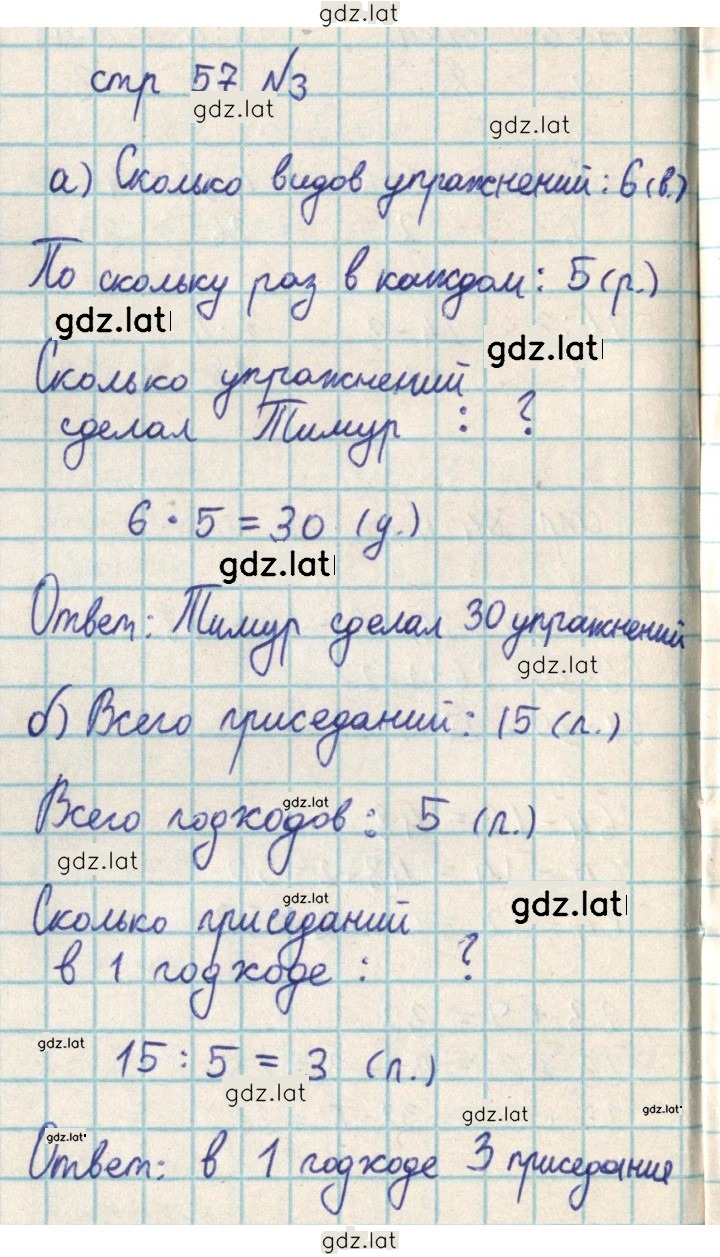 gdz.lat
стр 57 №3
gdz.lat
gdz.lat
а) Сколько видов упражнений: 6(в.)
По скольку раз в каждом: 5(р.)
gdz.lat
gdz.lat
Сколько упражнений
сделал Тимур : ?
6 · 5 = 30 (у.)
gdz.lat
Ответ: Тимур сделал 30 упражнений
gdz.lat
б) Всего приседаний: 15 (п.)
gdz.lat
Всего подходов: 5 (п.)
gdz.lat
gdz.lat
gdz.lat
Сколько приседаний
в 1 подходе : ?
gdz.lat
15 : 5 = 3 (п.)
gdz.lat
gdz.lat
gdz.lat
gdz.lat
Ответ: в 1 подходе 3 приседания
gdz.lat